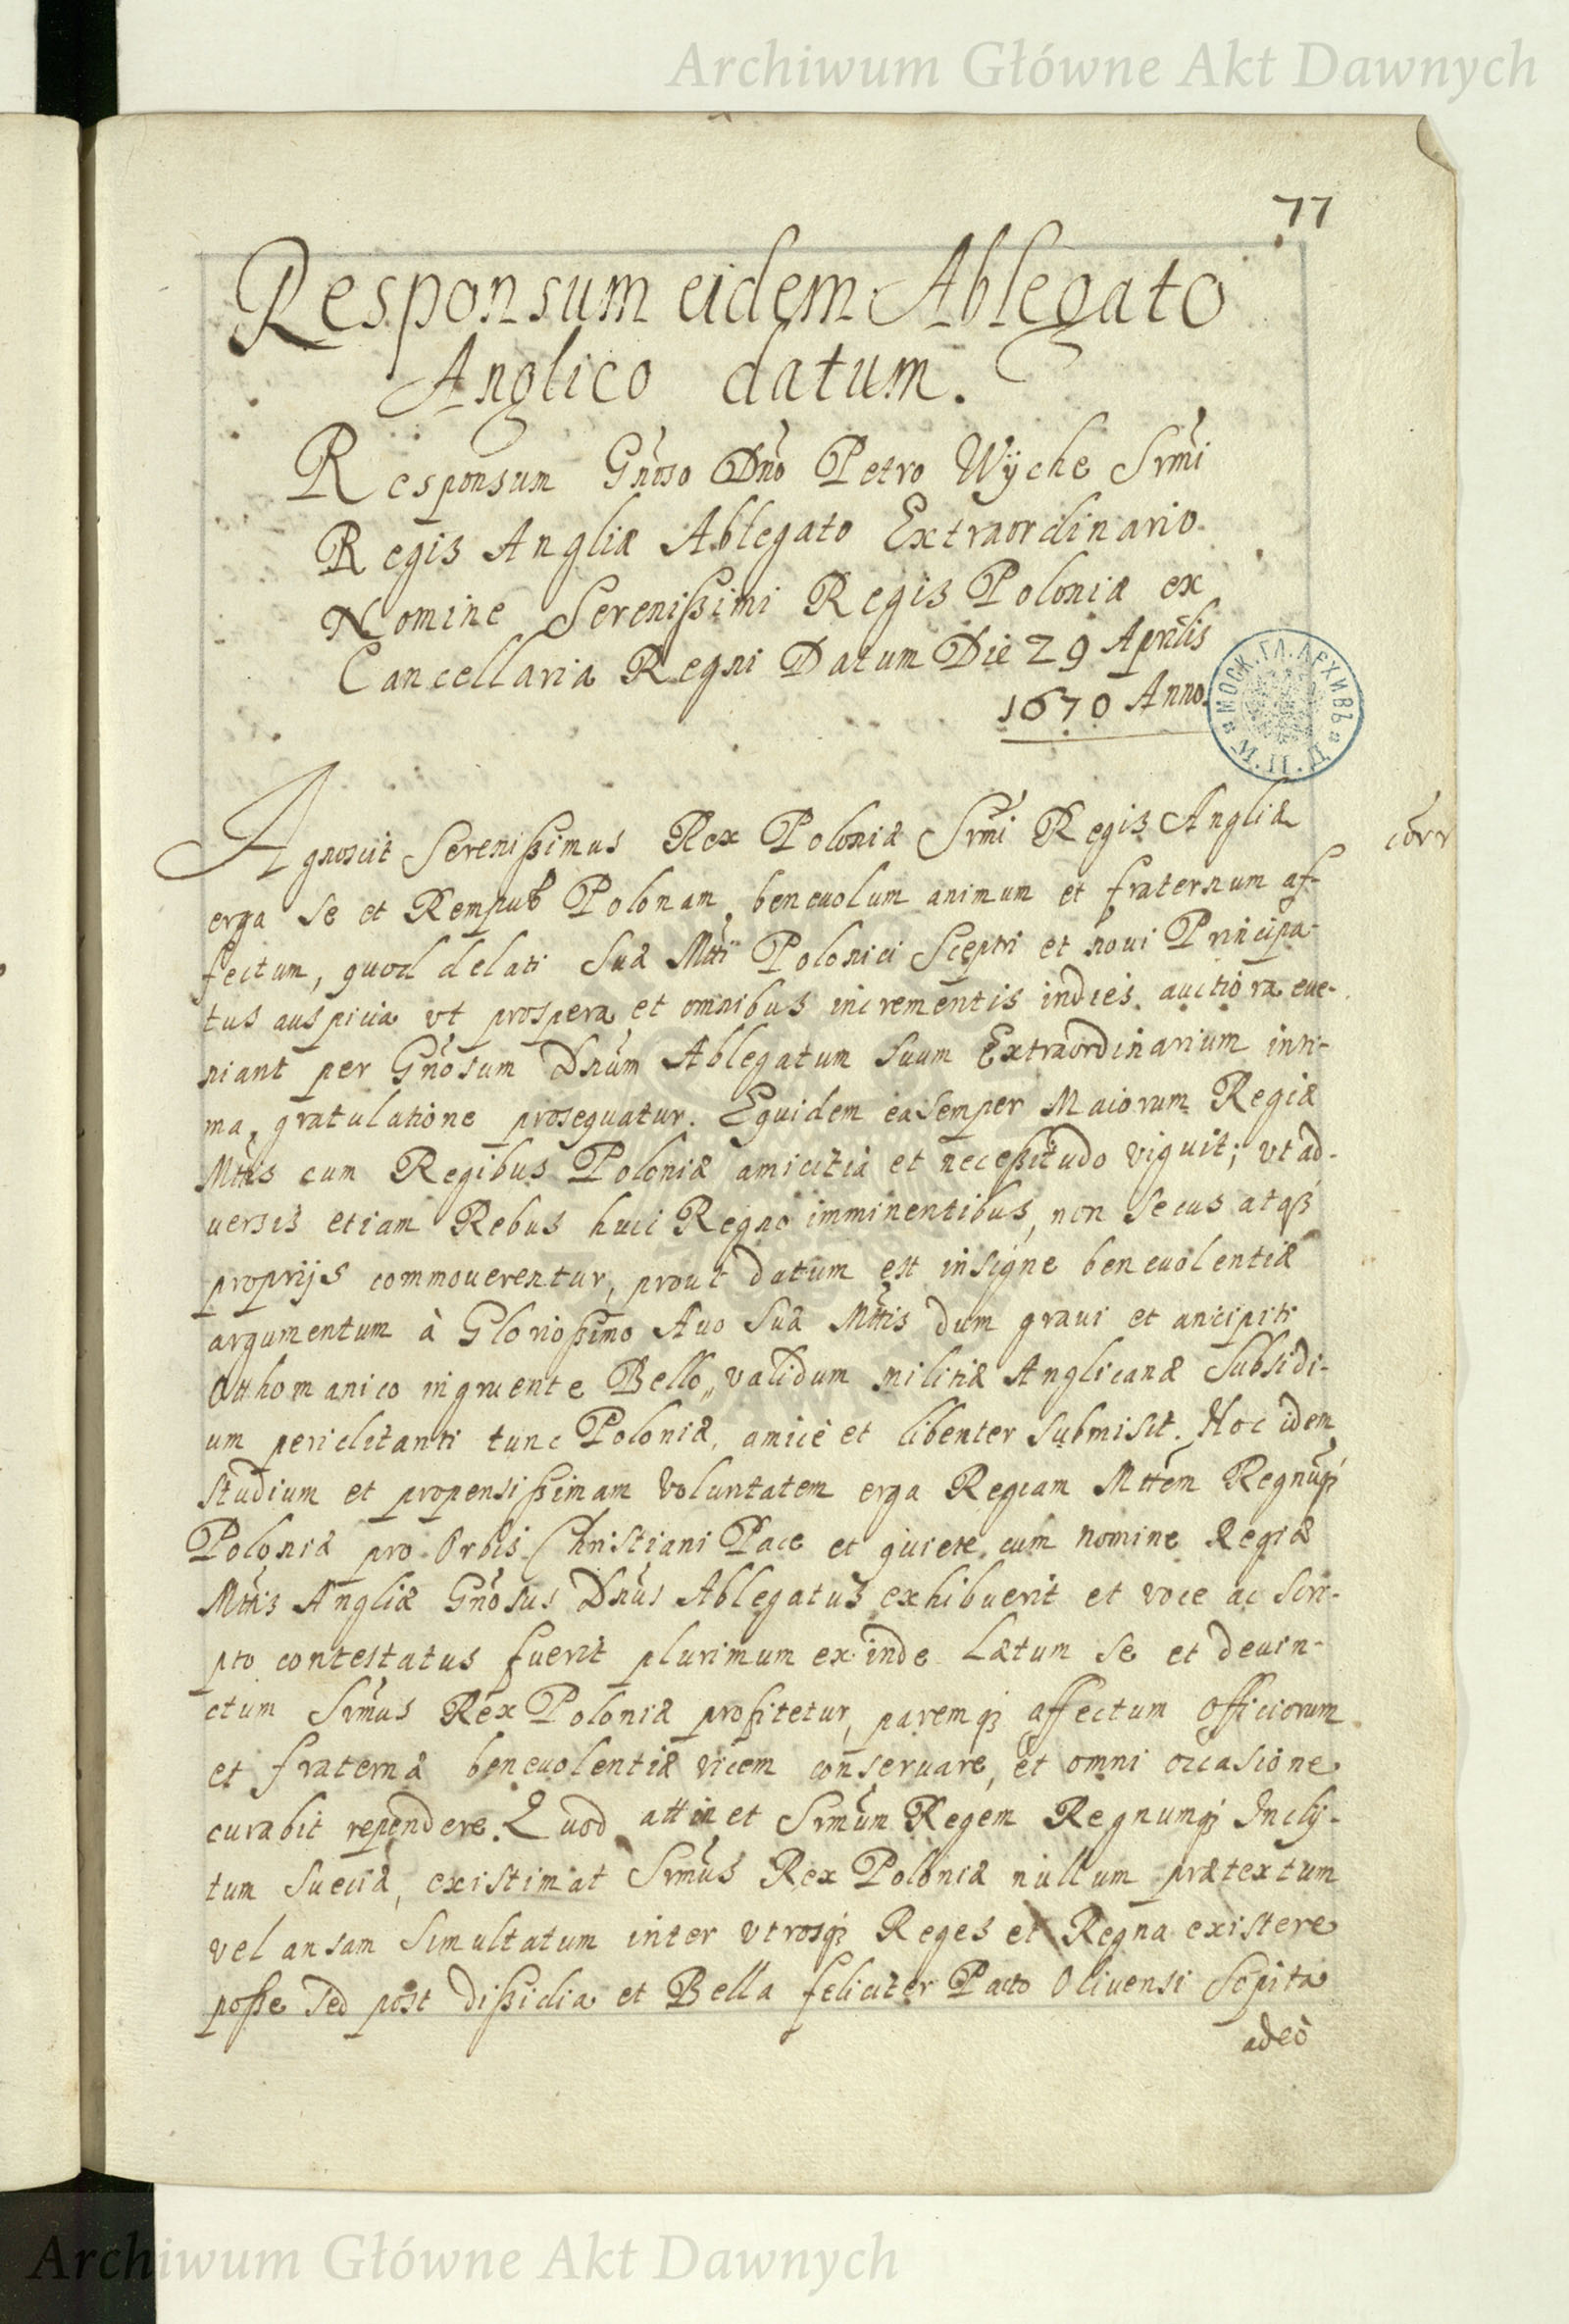 Archiwum Główne Akt Dawnych
77
Responsum eidem Ablegato
Anglico datum.
Responsum Gnoso Dno Petro Wÿche Srmi
Regis Angliæ Ablegato Extraordinario
Nomine Serenißimi Regis Poloniæ ex
Cancellaria Regni Datum Die 29 Aprilis
1670 Anno.
МОСК. ГЛ. АРХИВЪ
М. И. Д.
Agnoscit Serenißimus Rex Poloniæ Srmi Regis Angliæ
erga se et Rempub Polonam benevolum animum et fraternum af-
fectum, quod delati Suæ Mtti Polonici Sceptri et noui Principa-
tus auspicia vt prospera et omnibus incrementis indies auctiora eue-
niant per Gnosum Dnum Ablegatum suum Extraordinarium inti-
ma, gratulatione prosequatur. Equidem ea semper Maiorum Regiæ
Mttis cum Regibus Poloniæ amicitia et necessitudo viguit; vt ad-
uersis etiam Rebus huic Regno imminentibus, non secus atqꝫ
proprijs commouerentur, prout datum est insigne beneuolentiæ
argumentum à Glorioßimo Auo Suæ Mttis dum graui et ancipiti
Otthomanico ingruente Bello, validum militiæ Anglicanæ Subsidi-
um periclitanti tunc Poloniæ, amicè et libenter submisit. Hoc idem
studium et propensißimam voluntatem erga Regiam Mttem Regnuqꝫ
Poloniæ pro Orbis Christiani Pace et quiete cum nomine Regiæ
Mttis Angliæ Gnosus Dnus Ablegatus exhibuerit et voce ac scri-
pto contestatus fuerit plurimum exinde Lætum se et deuin-
ctum Srmus Rex Poloniæ profitetur, paremqꝫ affectum officiorum
et fraternæ beneuolentiæ vicem conseruare, et omni occasione
curabit rependere. Quod attinet Srmum Regem Regnumqꝫ Incly-
tum Sueciæ, existimat Srmus Rex Poloniæ nullum prætextum
vel ansam simultatum inter vtrosqꝫ Reges et Regna existere
poße sed post dißidia et Bella feliciter Pacto Oliuensi Sopita
adeò
Archiwum Główne Akt Dawnych